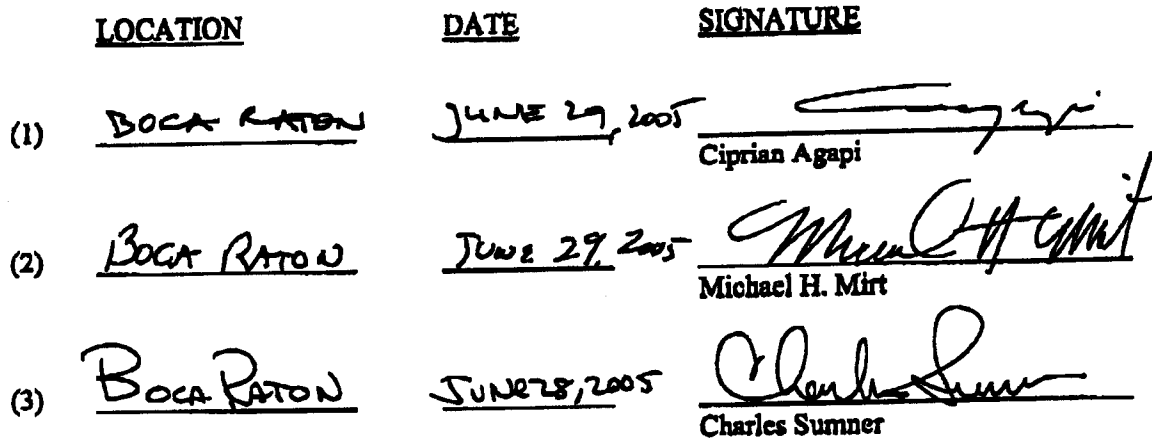 LOCATION DATE SIGNATURE
(1) BOCA RATON JUNE 29, 2005
Ciprian Agapi
(2) BOCA RATON JUNE 29, 2005 Michael H Mirt
Michael H. Mirt
(3) BOCA RATON JUNE 28, 2005 Charles Sumner
Charles Sumner